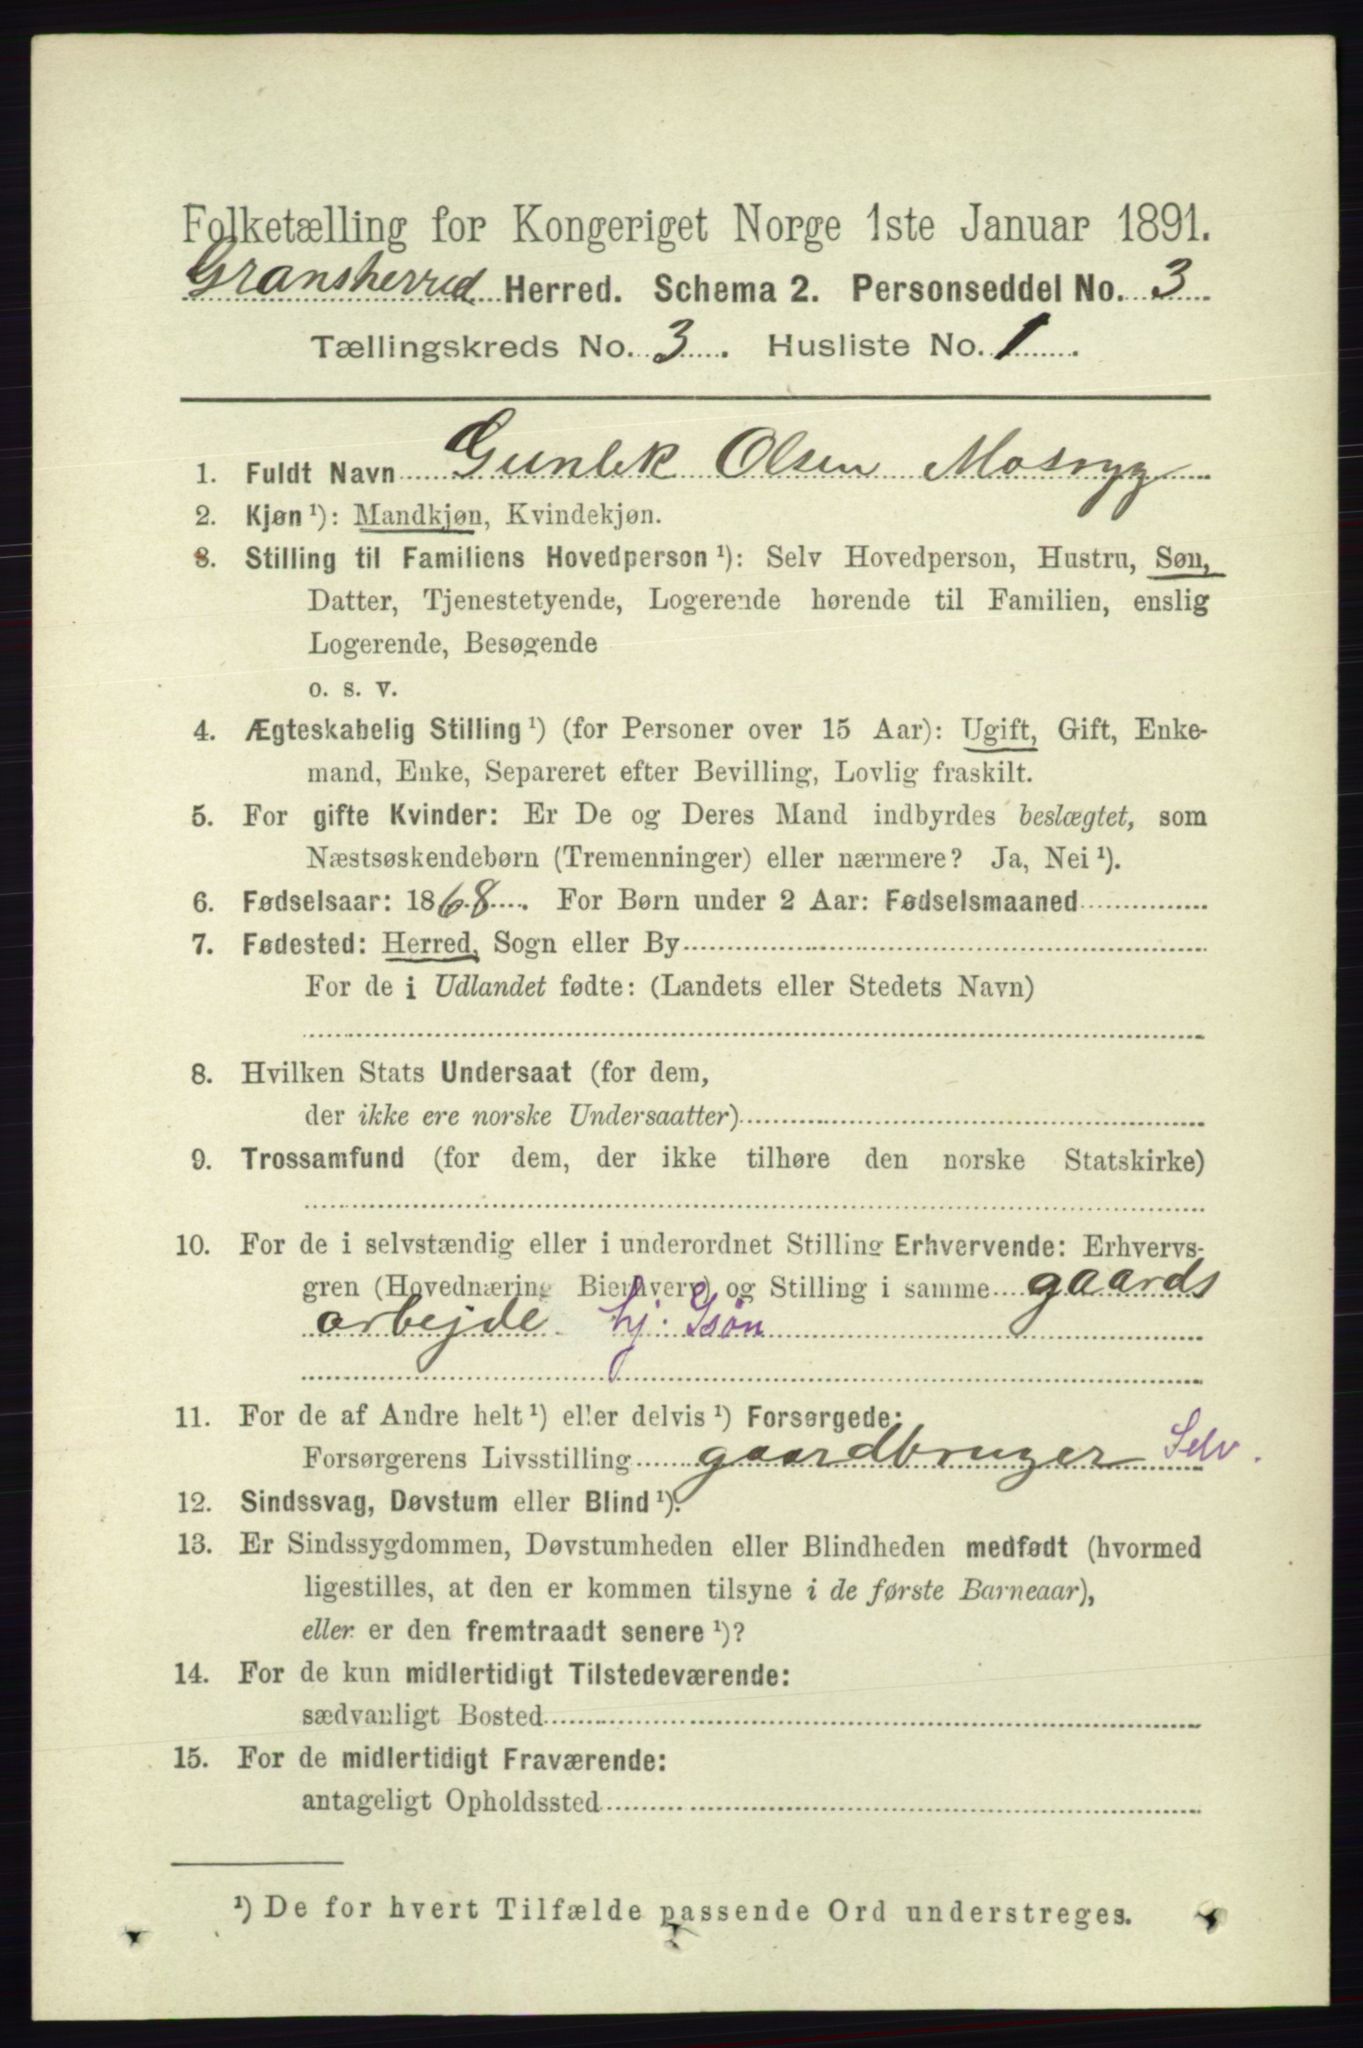 Folketælling for Kongeriget Norge 1ste Januar 1891.
Gransherred Herred. Schema 2. Personseddel No. 3
Tællingskreds No. 3. Husliste No. 1.
1. Fuldt Navn Gunlek Olsen Mosryg
2. Kjøn ¹): Mandkjøn, Kvindekjøn.
3. Stilling til Familiens Hovedperson ¹): Selv Hovedperson, Hustru, Søn,
Datter, Tjenestetyende, Logerende hørende til Familien, enslig
Logerende, Besøgende
o. s. v.
4. Ægteskabelig Stilling ¹) (for Personer over 15 Aar): Ugift, Gift, Enke-
mand, Enke, Separeret efter Bevilling, Lovlig fraskilt.
5. For gifte Kvinder: Er De og Deres Mand indbyrdes beslægtet, som
Næstsøskendebørn (Tremenninger) eller nærmere? Ja, Nei ¹).
6. Fødselsaar: 1868. For Børn under 2 Aar: Fødselsmaaned
7. Fødested: Herred, Sogn eller By
For de i Udlandet fødte: (Landets eller Stedets Navn)
8. Hvilken Stats Undersaat (for dem,
der ikke ere norske Undersaatter)
9. Trossamfund (for dem, der ikke tilhøre den norske Statskirke)
10. For de i selvstændig eller i underordnet Stilling Erhvervende: Erhvervs-
gren (Hovednæring Bierhverv) og Stilling i samme gaards
arbejde. hj. Gsøn
11. For de af Andre helt ¹) eller delvis ¹) Forsørgede:
Forsørgerens Livsstilling gaardbruger Selv.
12. Sindssvag, Døvstum eller Blind ¹).
13. Er Sindssygdommen, Døvstumheden eller Blindheden medfødt (hvormed
ligestilles, at den er kommen tilsyne i de første Barneaar),
eller er den fremtraadt senere ¹)?
14. For de kun midlertidigt Tilstedeværende:
sædvanligt Bosted
15. For de midlertidigt Fraværende:
antageligt Opholdssted
¹) De for hvert Tilfælde passende Ord understreges.